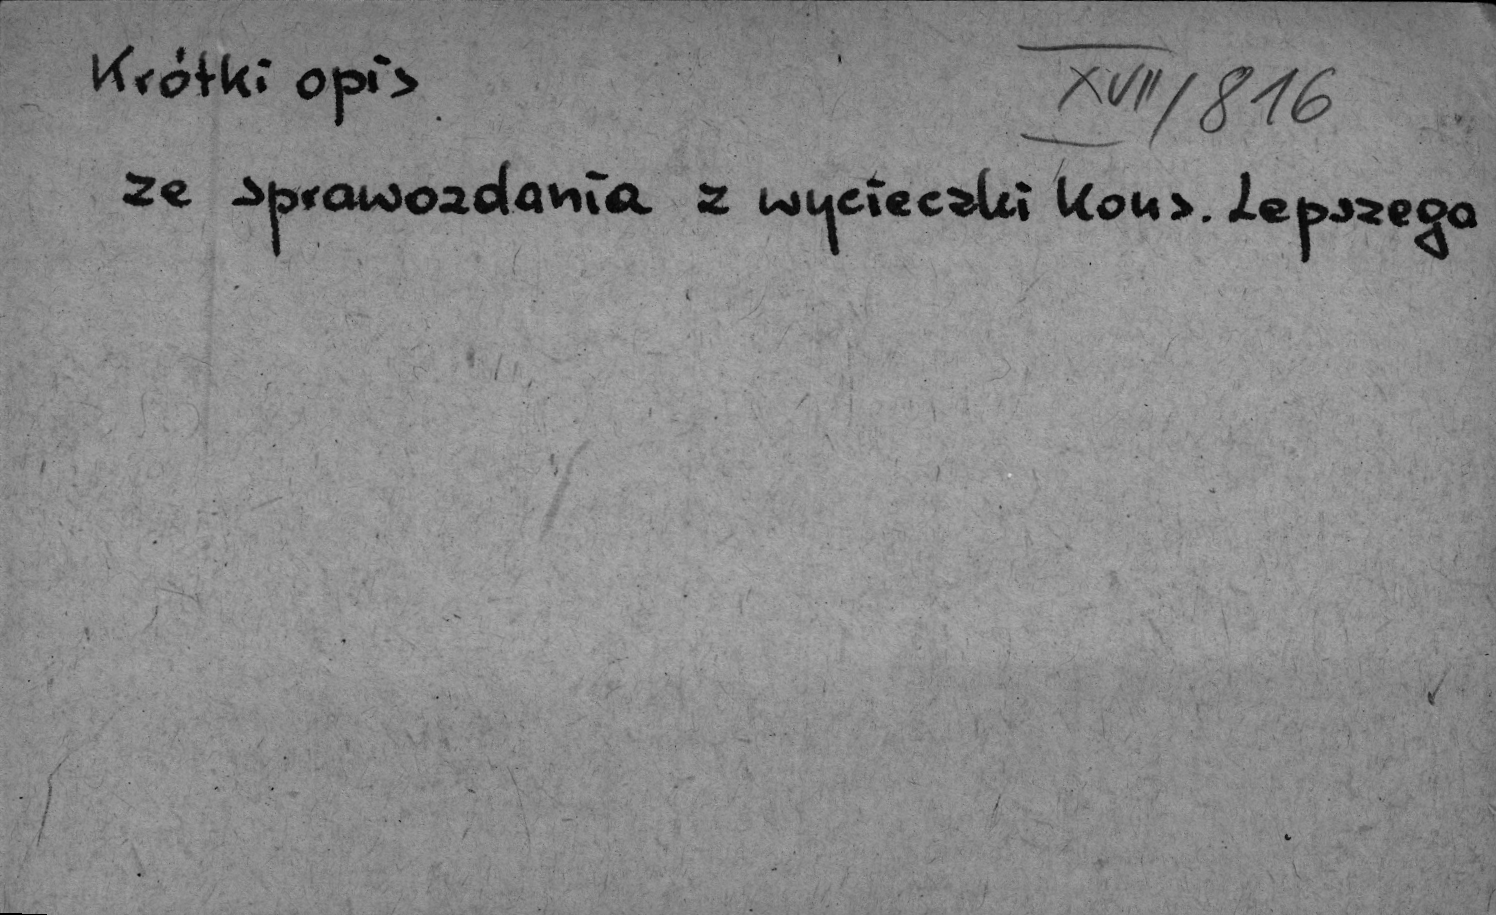 Krótki opis
XVII/816
ze sprawozdania z wycieczki Kons. Lepszego